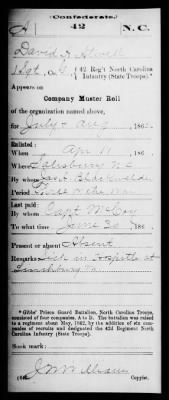 (Confederate.)
A 42 N.C.
David J. Atwell
Sgt, Co. G, 42 Reg't North Carolina
Infantry (State Troops).*
Appears on
Company Muster Roll
of the organization named above,
for July & Aug, 186
Enlisted:
When Apr 11, 186
Where Salisbury N.C.
By whom
Period
Last paid:
By whom Capt McCoy
To what time June 30, 186
Present or absent Absent
Remarks: Sick in Hospital at
Lynchburg Va
*Gibbs' Prison Guard Battalion, North Carolina Troops,
consisted of four companies, A to D. The battalion was raised
to a regiment about May, 1862, by the addition of six companies
or recruits and designated the 42d Regiment North
Carolina Infantry (State Troops).
Book mark:
Copyist.